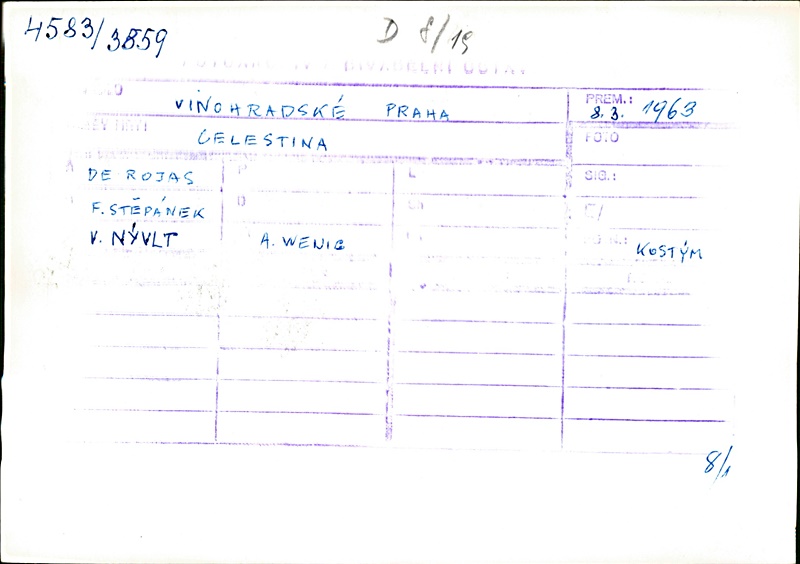 4583/3859
D 8/19
DIVADELNÍ ÚSTAV
VINOHRADSKÉ PRAHA
PREM.: 8. 3. 1963
CELESTINA
FOTO
DE ROJAS
P
L
SIG.:
F. ŠTĚPÁNEK
D
Č/
V. NÝVLT
A. WENIG
KOSTÝM
8/1